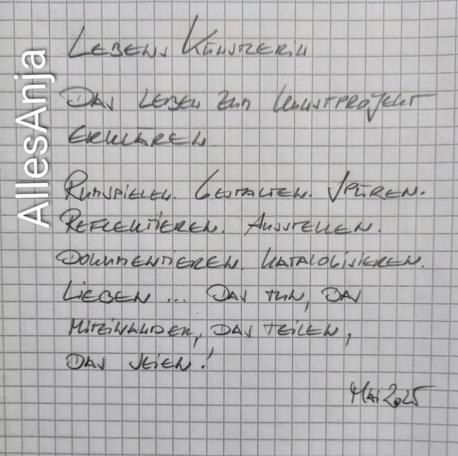 AllesAnja
LEBENS KÜNSTLERIN
DAS LEBEN ZUM KUNSTPROJEKT
ERKLÄREN.
RUMSPIELEN. GESTALTEN. SPÜREN.
REFLEKTIEREN. AUSSTELLEN.
DOKUMENTIEREN. KATALOGISIEREN.
LIEBEN ... DAS TUN, DAS
MITEINANDER, DAS TEILEN,
DAS SEIEN!
MAI 2025